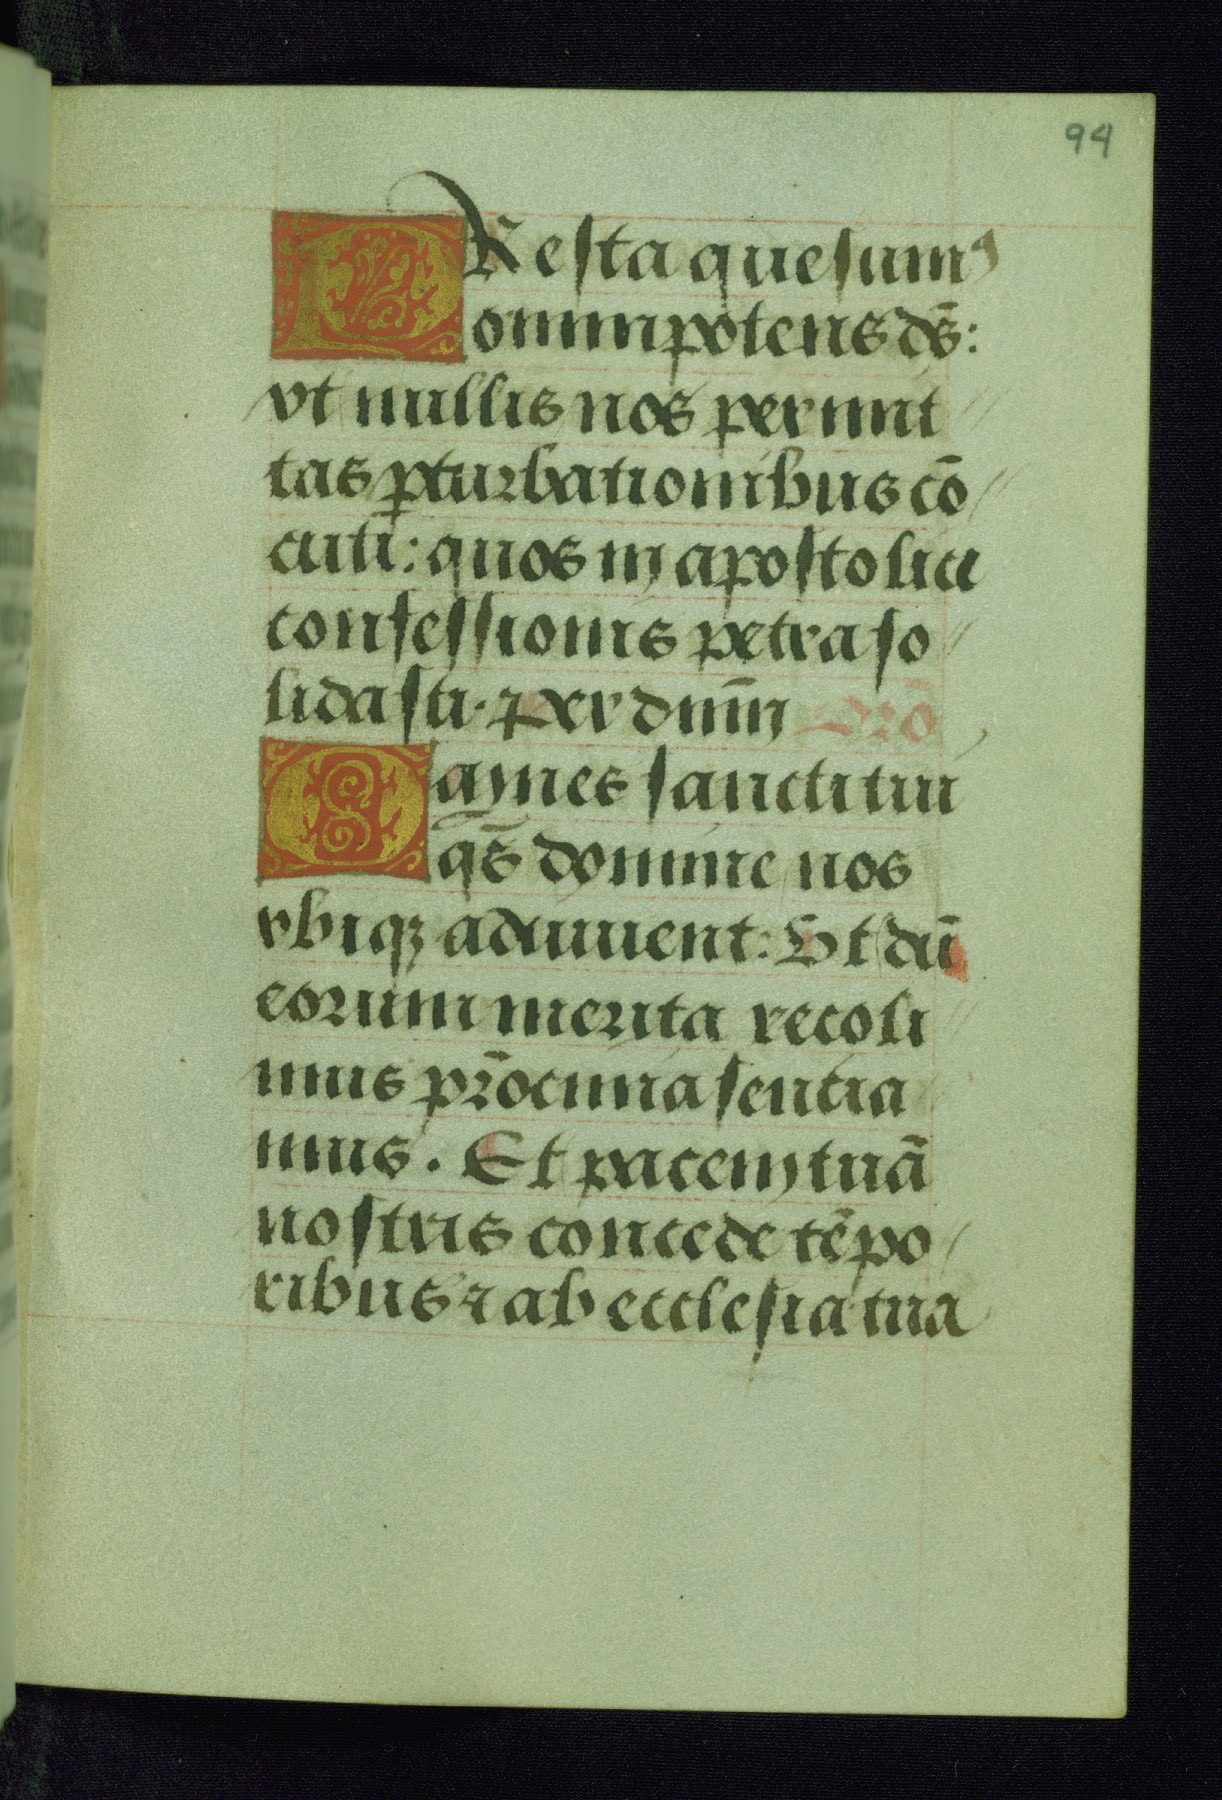 94
PResta quesumꝰ
omnipotens ds̄:
vt nullis nos permit
tas ꝑturbationibus cō
cuti: quos in apostolice
confessionis petra so
lidasti. per dnm̄ Orō
Omnes sancti tui
qs̄ domine nos
vbiqꝫ adiuuent: Vt dū
eorum merita recoli
mus pr̄ocinia sentia
mus. Et pacem tuā
nostris concede tēpo
ribus ⁊ ab ecclesia tua